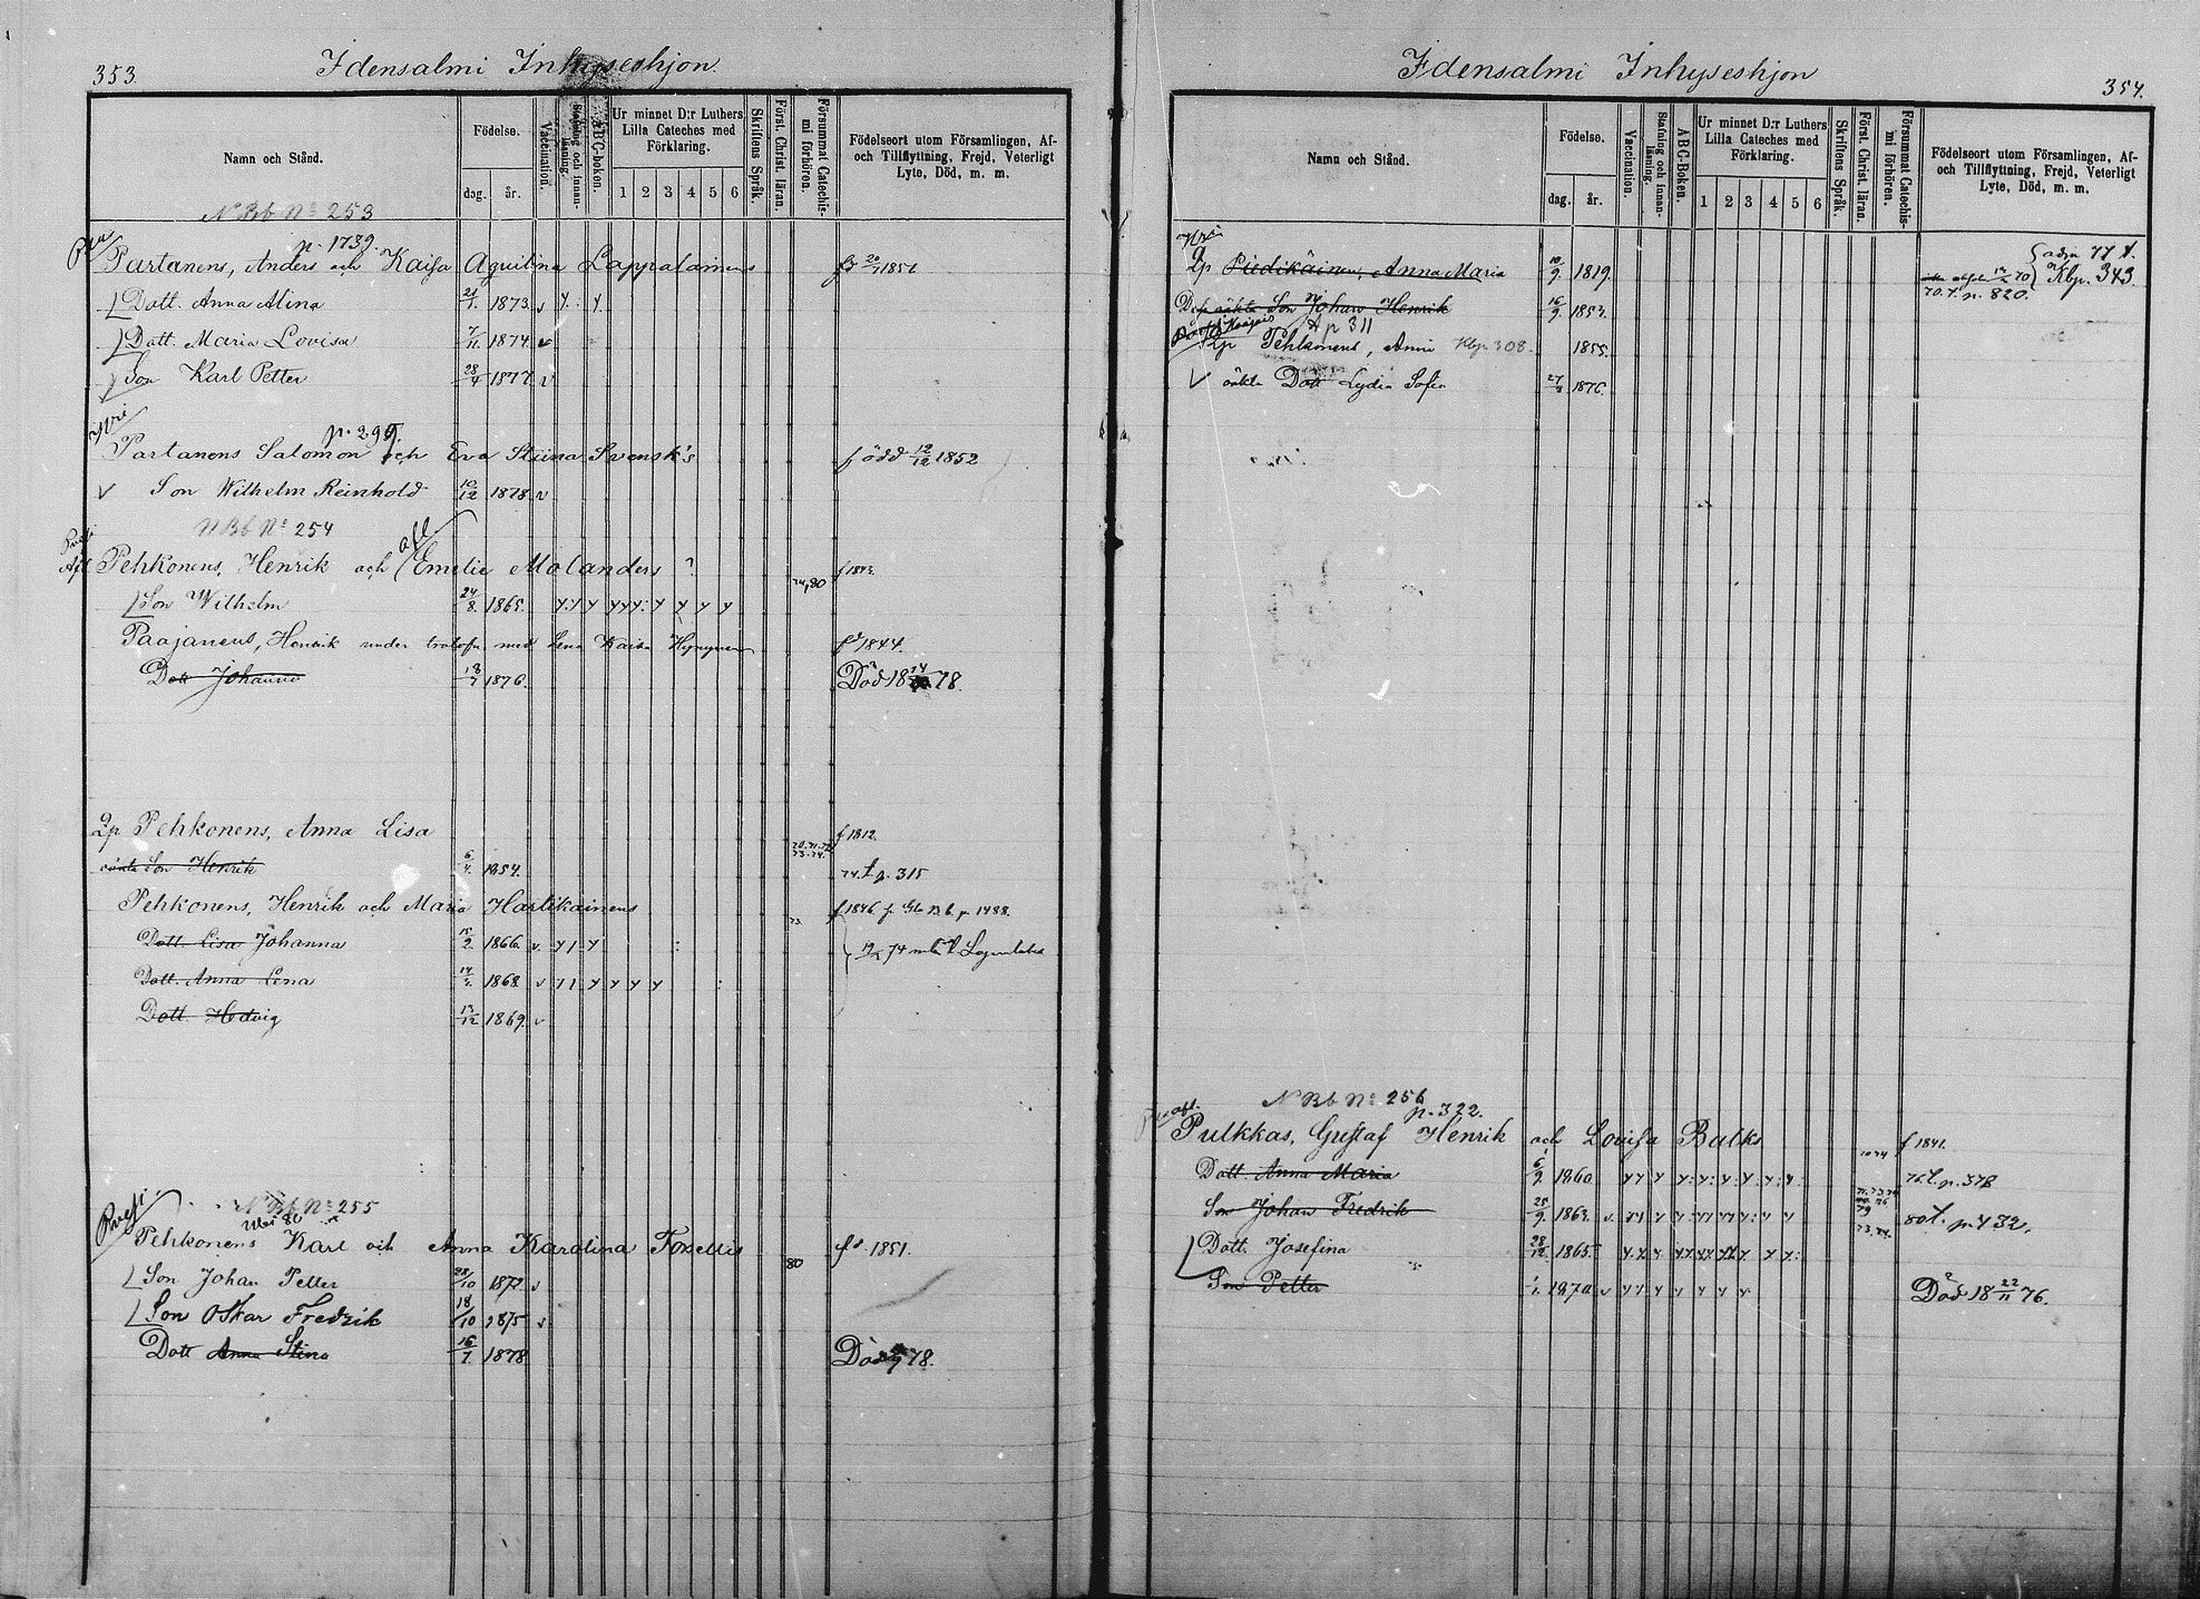 353.
Idensalmi Inhyseshjon.
Namn och Stånd.
Födelse.
dag. år.
Vaccination.
Stafning och innan-läsning.
ABC-boken.
Ur minnet D:r Luthers Lilla Cateches med Förklaring.
1 2 3 4 5 6
Skriftens Språk.
Först. Christ. läran.
Försummat Catechis-mi förhören.
Födelseort utom Församlingen, Af-
och Tillflyttning, Frejd, Veterligt
Lyte, Död, m. m.
N Bb No 253
p. 1739.
Partanens, Anders och Kaisa Aquilina Lappalainens 20/7 1851
Dott. Anna Alina 1873. v
Dott. Maria Lovisa 7/11. 1874. v
Son Karl Petter 28/4 1877. v
Partanens Salomon och Eva Stiina Svensk's född 12/12 1852
Son Wilhelm Reinhold 10/12 1878. v
N Bb No 254
Pehkonens, Henrik och Emelie Molanders ? 80 f 1843.
Son Wilhelm 24/8. 1865.
Paajanens, Henrik under trolofn. med Lena Kaisa Hyvynen f 1844.
Dott Johanna 18/7 1876. Död 78.
Pehkonens, Anna Lisa f 1812.
Son Henrik 1854. 74. p. 315
Pehkonens, Henrik och Maria Hartikainens f 1846 p. 1488.
Dott. Lisa Johanna 15/2. 1866. v.
Dott. Anna Lena 1868 v
Dott. Hedvig 13/12 1869. v
N Bb No 255
Pehkonens Karl och Anna Karolina Toxellis 80 1851.
Son Johan Petter 28/10 1872. v
Son Oskar Fredrik 18/10 1875 v
Dott Anna Stina 16/7. 1878 Död 78.
Idensalmi Inhyseshjon
354.
Namn och Stånd.
Födelse.
dag. år.
Vaccination.
Stafning och innan-läsning.
ABC-Boken.
Ur minnet D:r Luthers Lilla Cateches med Förklaring.
1 2 3 4 5 6
Skriftens Språk.
Först. Christ. läran.
Försummat Catechis-mi förhören.
Födelseort utom Församlingen, Af-
och Tillflyttning, Frejd, Veterligt
Lyte, Död, m. m.
Piedikäinen, Anna Maria 10/9. 1819. Kbp. 343.
70. p. 820.
Son Johan Henrik 16/9. 1853.
p 311
Pehkonens, Anna Kbp. 308. 1855.
oäkta Dott Lydia Sofia 1876.
N Bb No 256
p. 322.
Pulkkas, Gustaf Henrik och Lovisa Balks f 1841.
Dott. Anna Maria 6/9. 1860. p. 378
Son Johan Fredrik 25/9. 1863. v. 80 p. 432.
Dott. Josefina 28/12. 1865.
Son Petter 1870. v Död 18 22/11 76.